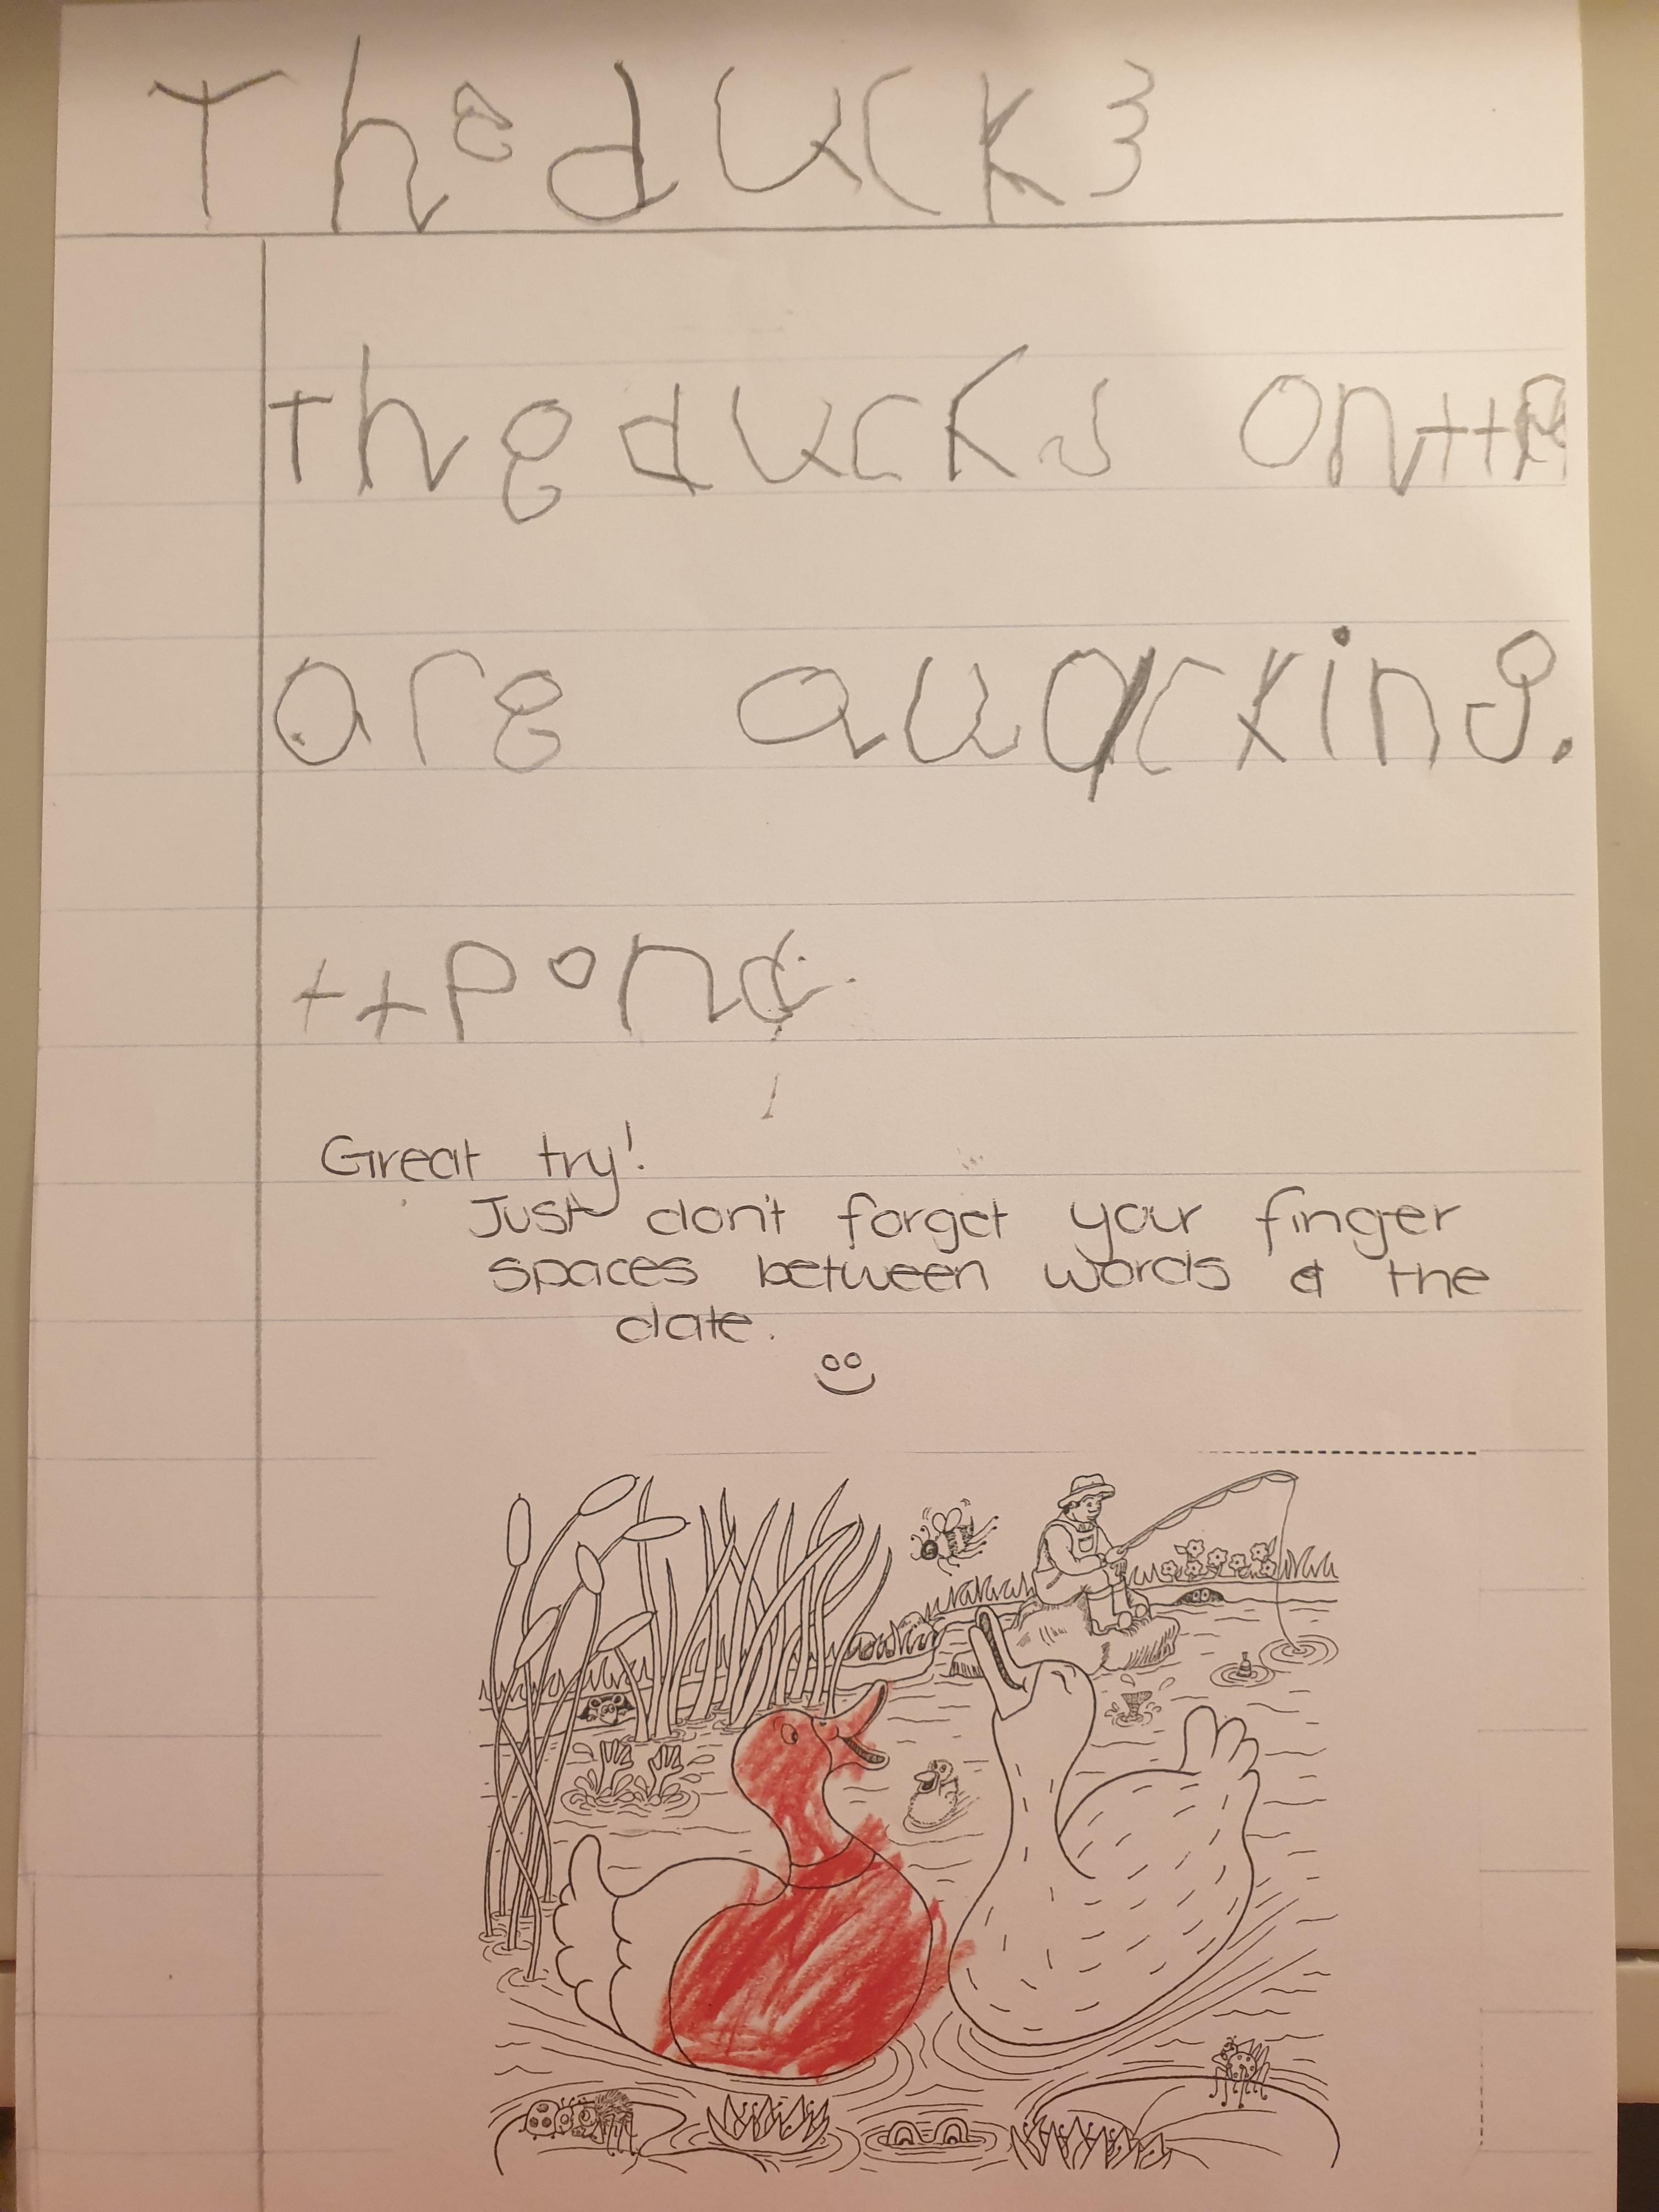 Theducks
theducks ontte
are quacking.
ttpond.
Great try!
Just don't forget your finger
spaces between words & the
date.